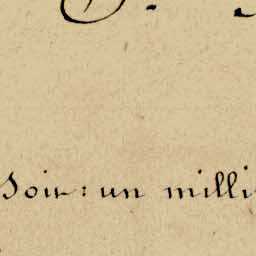 Soit: un milli